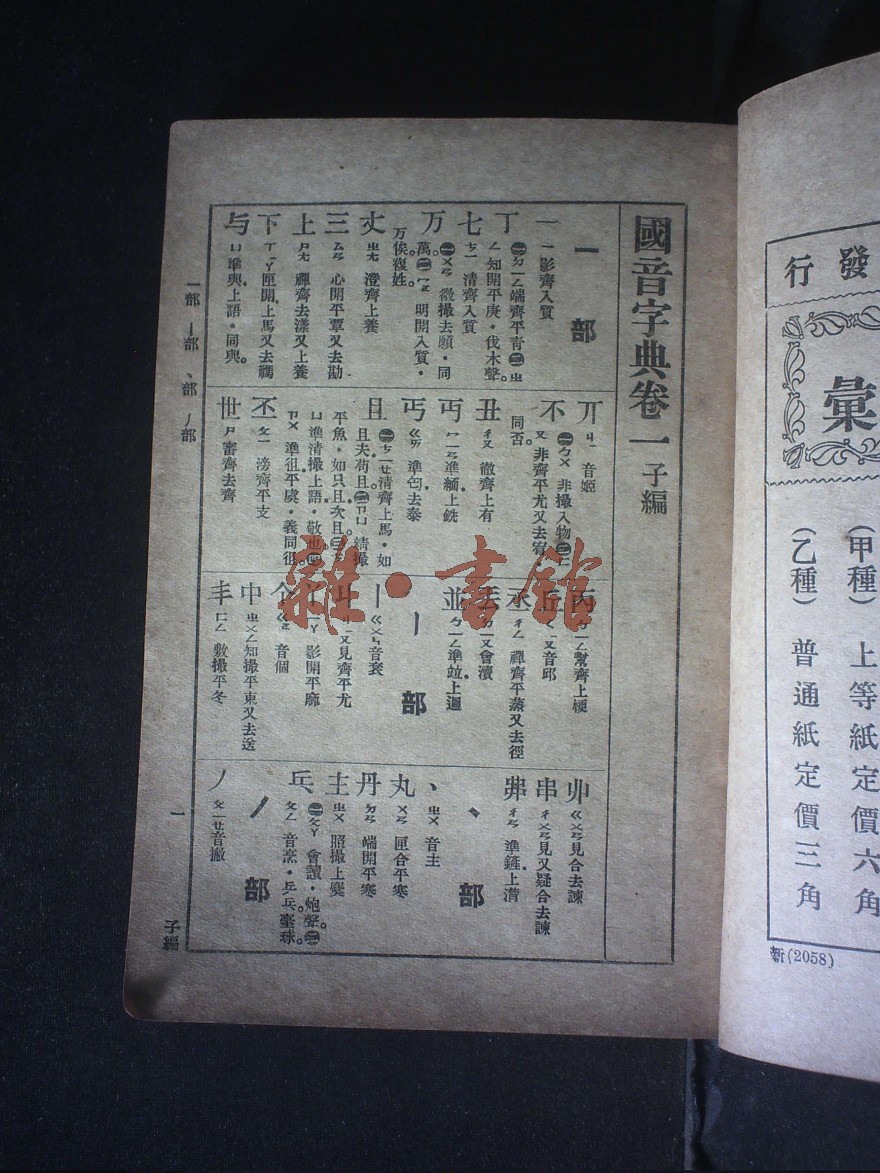 國音字典卷一 子編
一部
一 影齊入質
丁 ㊀ㄉㄧㄥ端齊平青㊁ㄓ
ㄥ知開平庚·伐木聲。
七 ㄘㄧ 清齊入質
万 ㊀ㄨㄢ 微撮去願·同
萬。㊁ 明開入質·
万俟複姓。
丈 ㄓㄤ 澄齊上養
三 ㄙㄢ 心開平覃又去勘
上 ㄕㄤ 禪齊去漾又上養
下 ㄒㄧㄚ匣開上馬又去禡
与 ㄩ準與上語·同與。
丌 ㄐㄧ 音姬
不 ㊀ㄅㄨ 非撮入物㊁ㄈ
ㄡ 非齊平尤又去宥
同否。
丑 ㄔㄡ 徹齊上有
丏 ㄇㄧㄢ準緬上銑
丐 ㄍㄞ 準匄去泰
且 ㊀ㄑㄧㄝ清齊上馬·如
且夫苟且。㊁ㄗㄩ 精撮
平魚·如只且次且㊂
ㄩ準清撮上語·敬也。㊃
ㄗㄨ 準徂平虞·義同徂。
丕 ㄆㄧ 滂齊平支
世 ㄕ 審齊去齊
丙 ㄅㄧㄥ幫齊上梗
丘 ㄑㄧㄡ音邱
丞 ㄔㄥ 禪齊平蒸又去徑
丟 ㄉㄧㄡ會瀆
並 ㄅㄧㄥ準竝上迥
丨部
丨 ㄍㄨㄣ音袞
丩 ㄐㄧㄡ見齊平尤
丫 ㄧㄚ 影開平麻
个 ㄍㄜ 音個
中 ㄓㄨㄥ知撮平東又去送
丰 ㄈㄥ 敷撮平冬
丱 ㄍㄨㄢ見合去諫
串 ㄔㄨㄢ見又疑合去諫
丳 ㄔㄢ 準鏟上潸
丶部
丶 ㄓㄨ 音主
丸 ㄨㄢ 匣合平寒
丹 ㄉㄢ 端開平寒
主 ㄓㄨ 照撮上麌
乓 ㊀ㄆㄚ 會讀·炮聲。㊁
ㄆㄤ 音·乒乓。臺球。
丿部
丿 ㄆㄧㄝ音撇
一部 丨部 丶部 丿部
一
子編
發行
彙
(甲種) 上等紙定價六角
(乙種) 普通紙定價三角
新(2058)
雜·書館